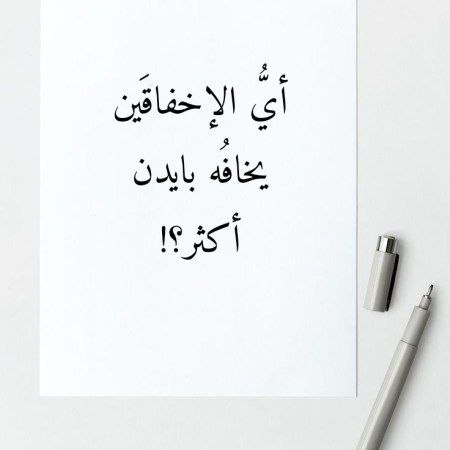 أيُّ الإخفاقَين
يخافُه بايدن
أكثر؟!